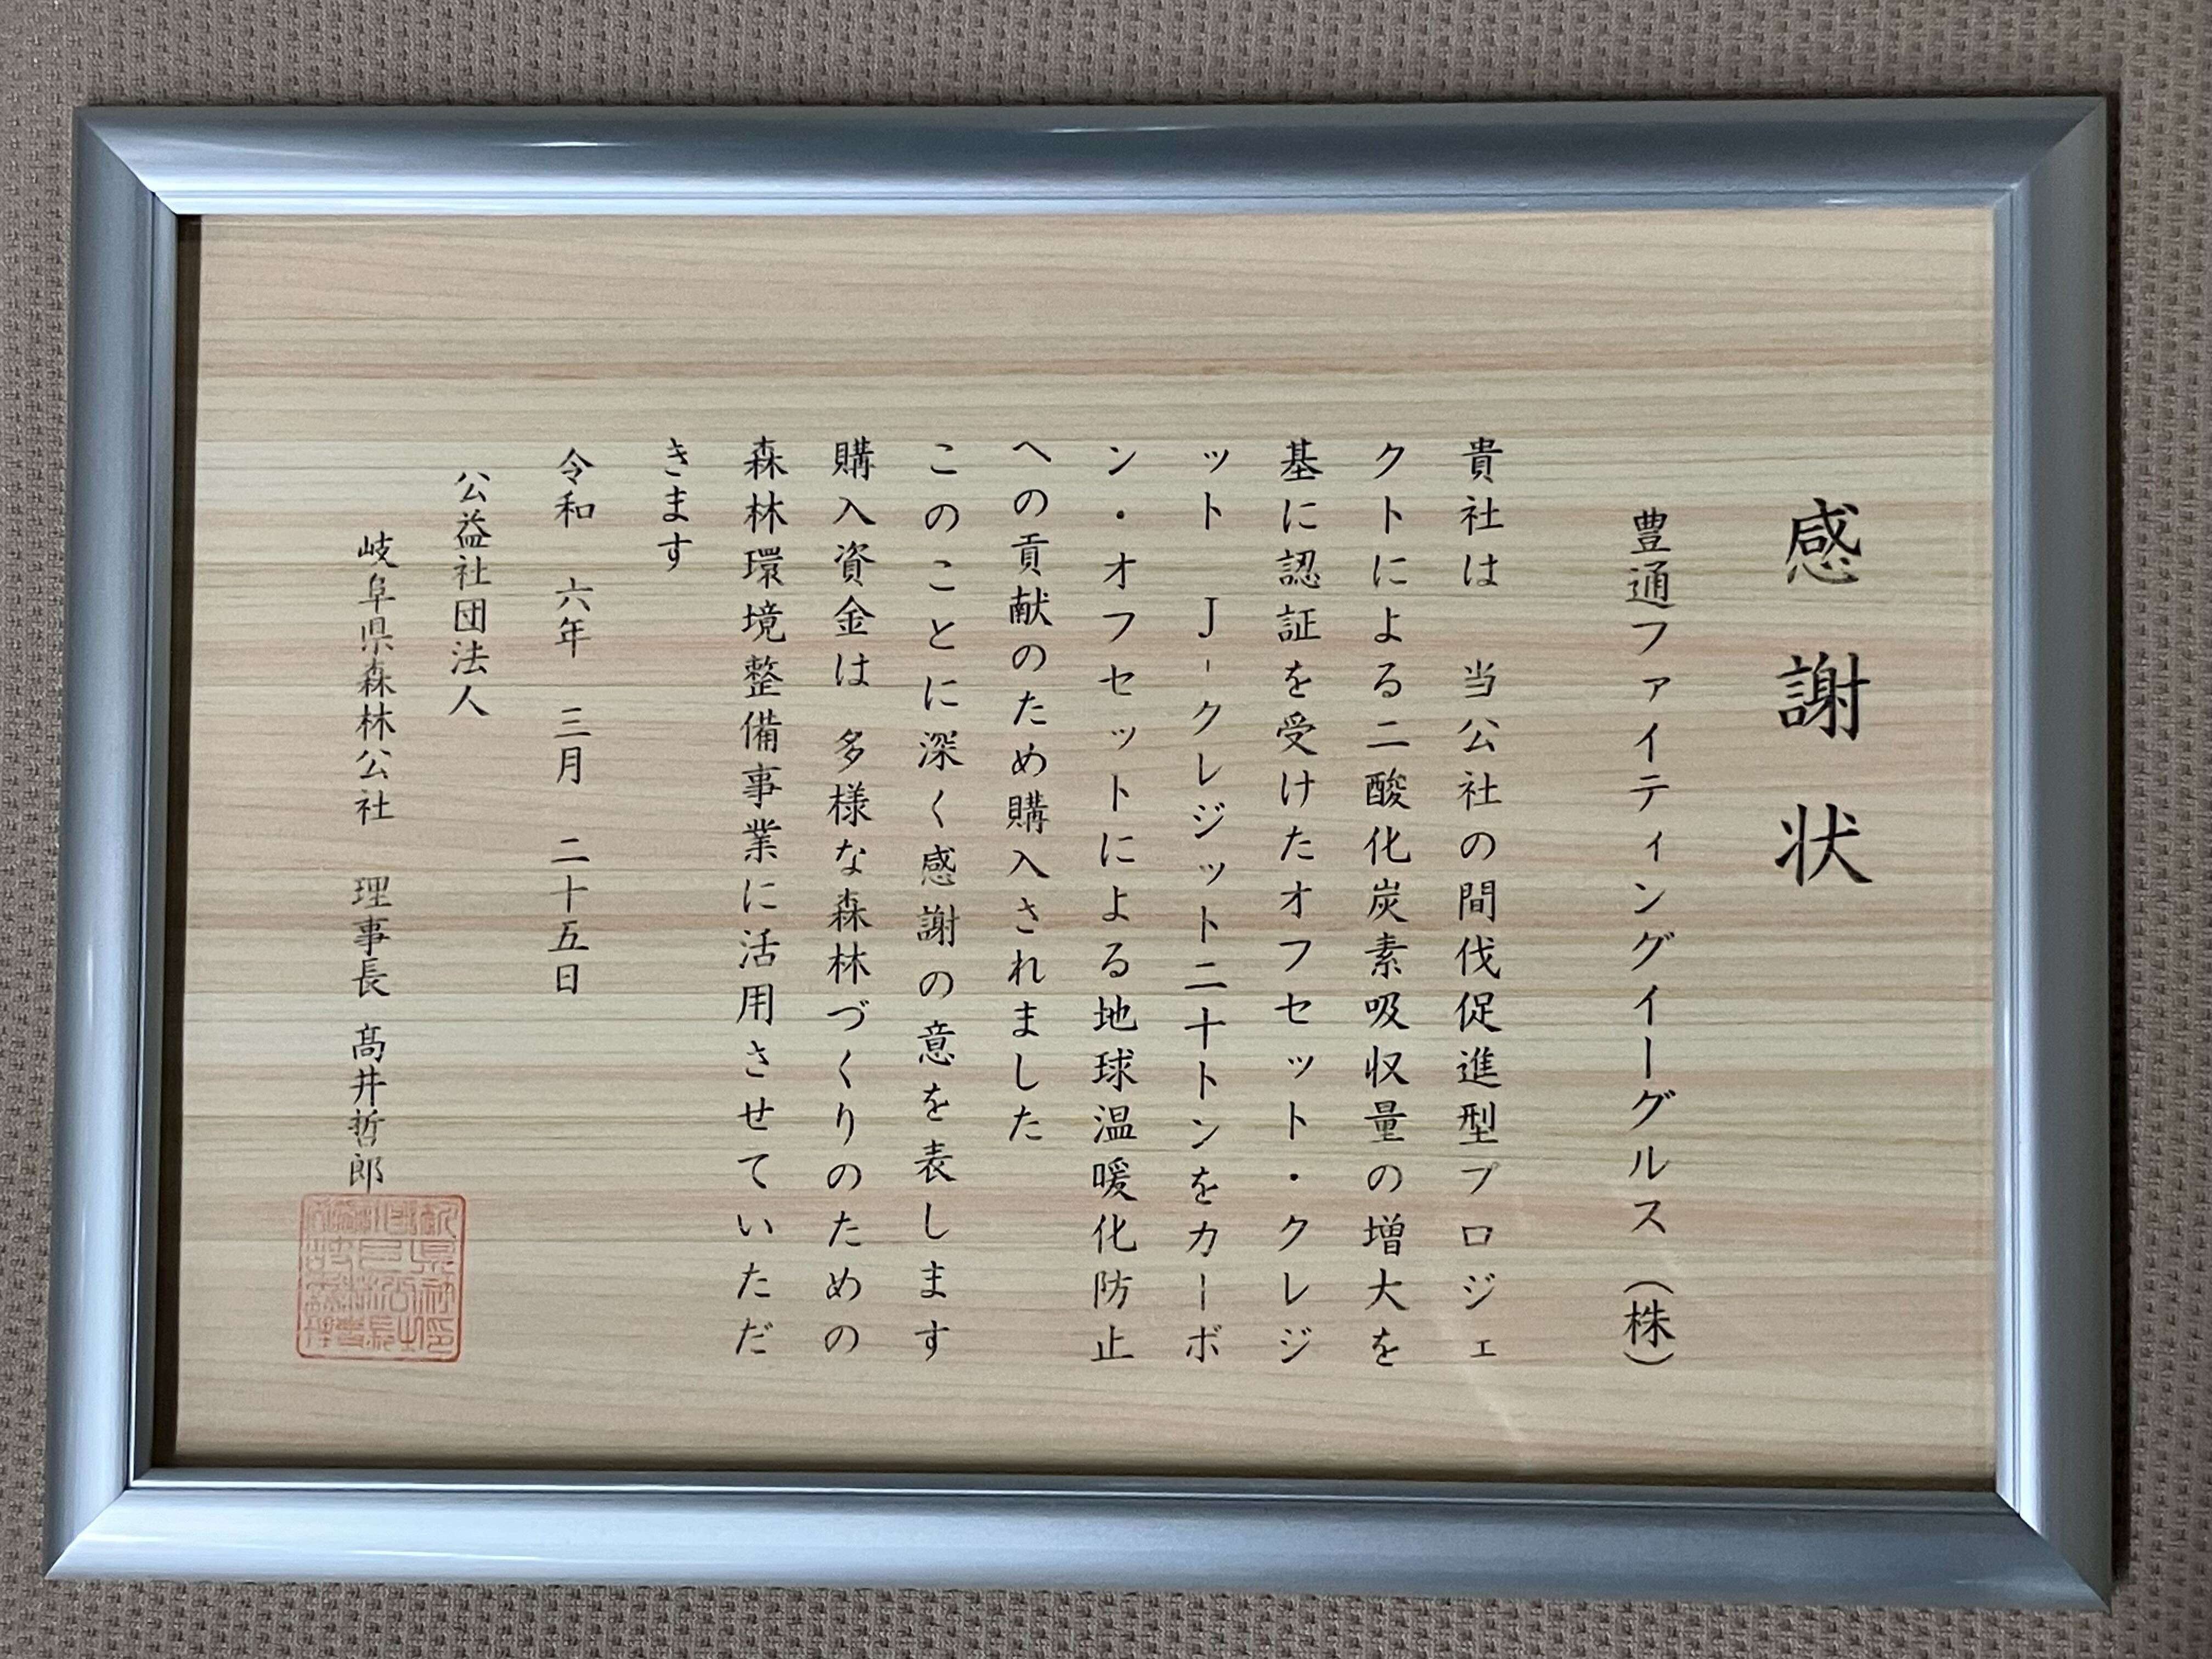 感謝状
豊通ファイティングイーグルス（株）
貴社は 当公社の間伐促進型プロジェ
クトによる二酸化炭素吸収量の増大を
基に認証を受けたオフセット・クレジ
ット J-クレジット二十トンをカーボ
ン・オフセットによる地球温暖化防止
への貢献のため購入されました
このことに深く感謝の意を表します
購入資金は 多様な森林づくりのための
森林環境整備事業に活用させていただ
きます
令和 六年 三月 二十五日
公益社団法人
岐阜県森林公社 理事長 髙井哲郎